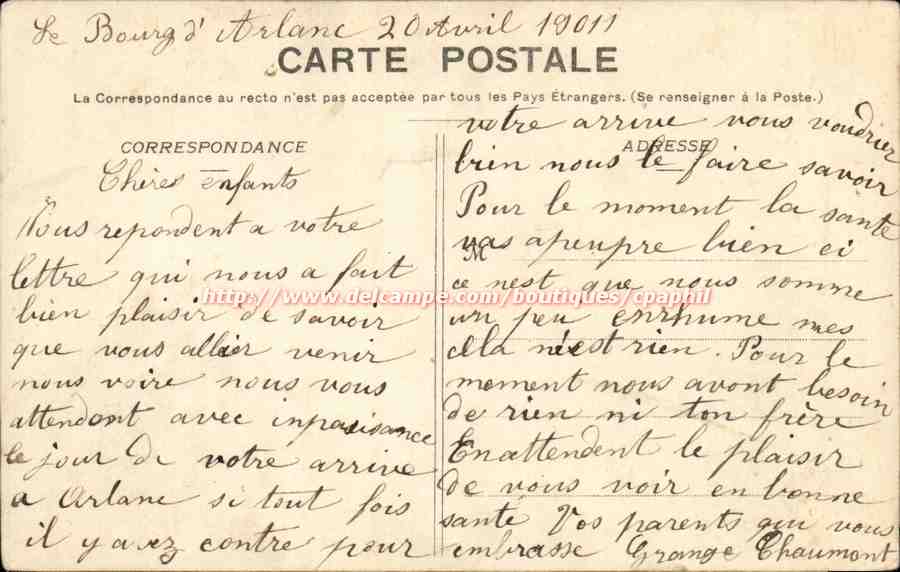 Le Bourg d'Arlanc 20 Avril 19011
CARTE POSTALE
La Correspondance au recto n'est pas acceptée par tous les Pays Étrangers. (Se renseigner à la Poste.)
CORRESPONDANCE
Chères enfants
Nous repondent a votre
lettre qui nous a fait
bien plaisir de savoir
que vous allier venir
nous voire nous vous
attendont avec inpasisance
le jour de votre arrive
a Arlanc si tout fois
il y avez contre pour
ADRESSE
votre arrive vous voudrier
bien nous le faire savoir
Pour le moment la sante
M
vas apeupre bien ci
ce nest que nous somme
un peu enrhume mes
cela n'est rien. Pour le
moment nous avont besoin
de rien ni ton frère
Enattendent le plaisir
de vous voir en bonne
santé Vos parents qui vous
embrasse Grange Chaumont
http://www.delcampe.com/boutiques/cpaphil